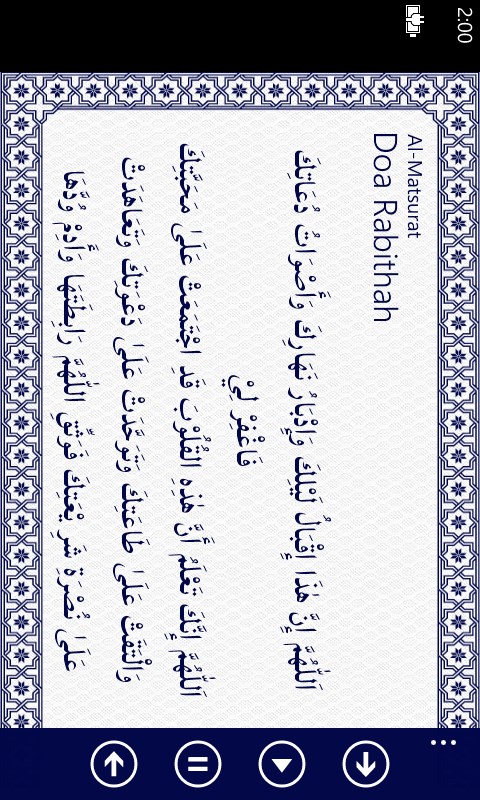 2:00
Al-Matsurat
Doa Rabithah
اَللّٰهُمَّ اِنَّ هٰذَا اِقْبَالُ لَيْلِكَ وَاِدْبَارُ نَهَارِكَ وَأَصْوَاتُ دُعَاتِكَ
فَاغْفِرْ لِيْ
اَللّٰهُمَّ اِنَّكَ تَعْلَمُ أَنَّ هٰذِهِ الْقُلُوْبَ قَدِ اجْتَمَعَتْ عَلَىٰ مَحَبَّتِكَ
وَالْتَقَتْ عَلَىٰ طَاعَتِكَ وَتَوَحَّدَتْ عَلَىٰ دَعْوَتِكَ وَتَعَاهَدَتْ
عَلَىٰ نُصْرَةِ شَرِيْعَتِكَ فَوَثِّقِ اللّٰهُمَّ رَابِطَتَهَا وَأَدِمْ وُدَّهَا